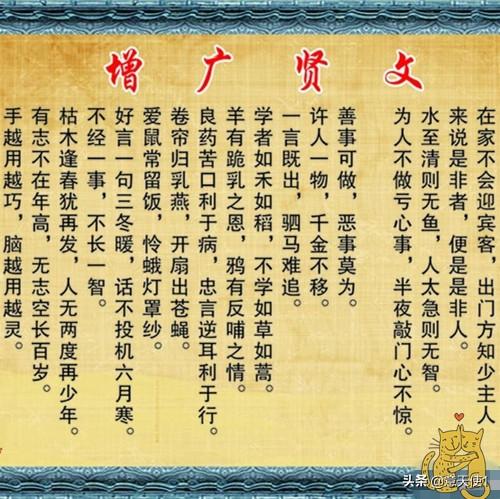 增广贤文
在家不会迎宾客，出门方知少主人
来说是非者，便是是非人。
水至清则无鱼，人太急则无智。
为人不做亏心事，半夜敲门心不惊。
善事可做，恶事莫为。
许人一物，千金不移。
一言既出，驷马难追。
学者如禾如稻，不学如草如蒿。
羊有跪乳之恩，鸦有反哺之情。
良药苦口利于病，忠言逆耳利于行。
卷帘归乳燕，开扇出苍蝇。
爱鼠常留饭，怜蛾灯罩纱。
好言一句三冬暖，话不投机六月寒。
不经一事，不长一智。
枯木逢春犹再发，人无两度再少年。
有志不在年高，无志空长百岁。
手越用越巧，脑越用越灵。
头条@意天使1